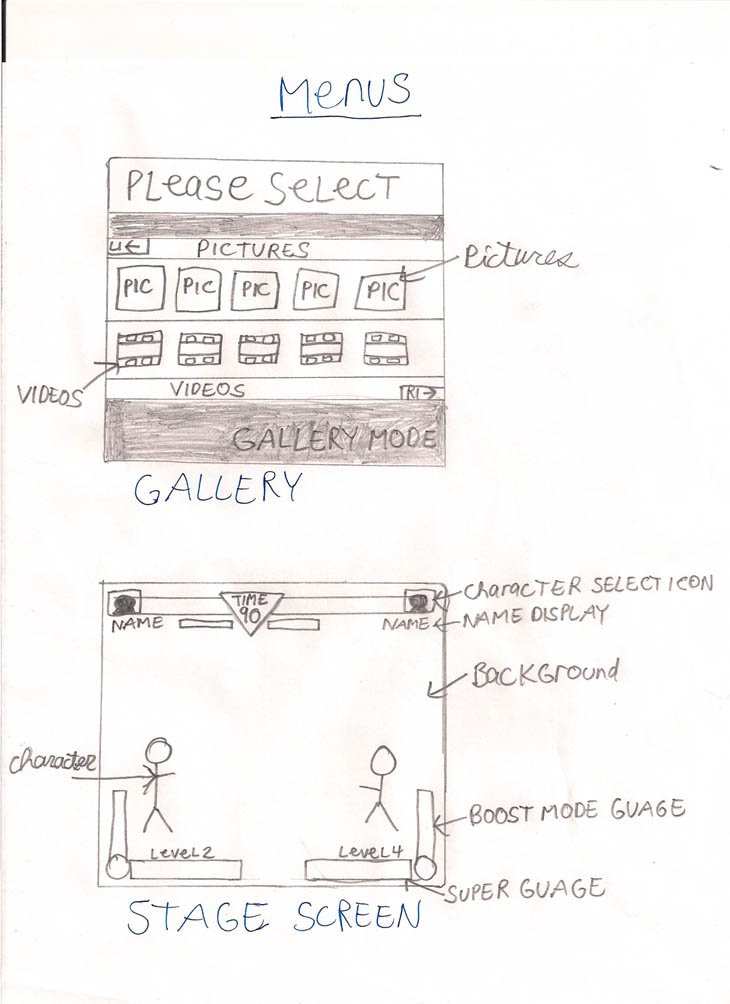 Menus
PLease SeLecT
PICTURES
Pictures
PIC PIC PIC PIC PIC
VIDEOS
VIDEOS
GALLERY MODE
GALLERY
TIME
90
CharacTER SELECT ICON
NAME
NAME
NAME DISPLAY
BacKGrounD
character
BOOST MODE GUAGE
LeveL2
LeveL4
SUPER GUAGE
STAGE SCREEN